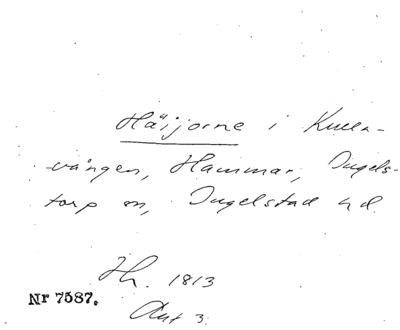 Häijorne i Kulla-
vången, Hammar, Ingels-
torp sn, Ingelstad hd.
Hh. 1813
Nr 7587.
Akt 3.